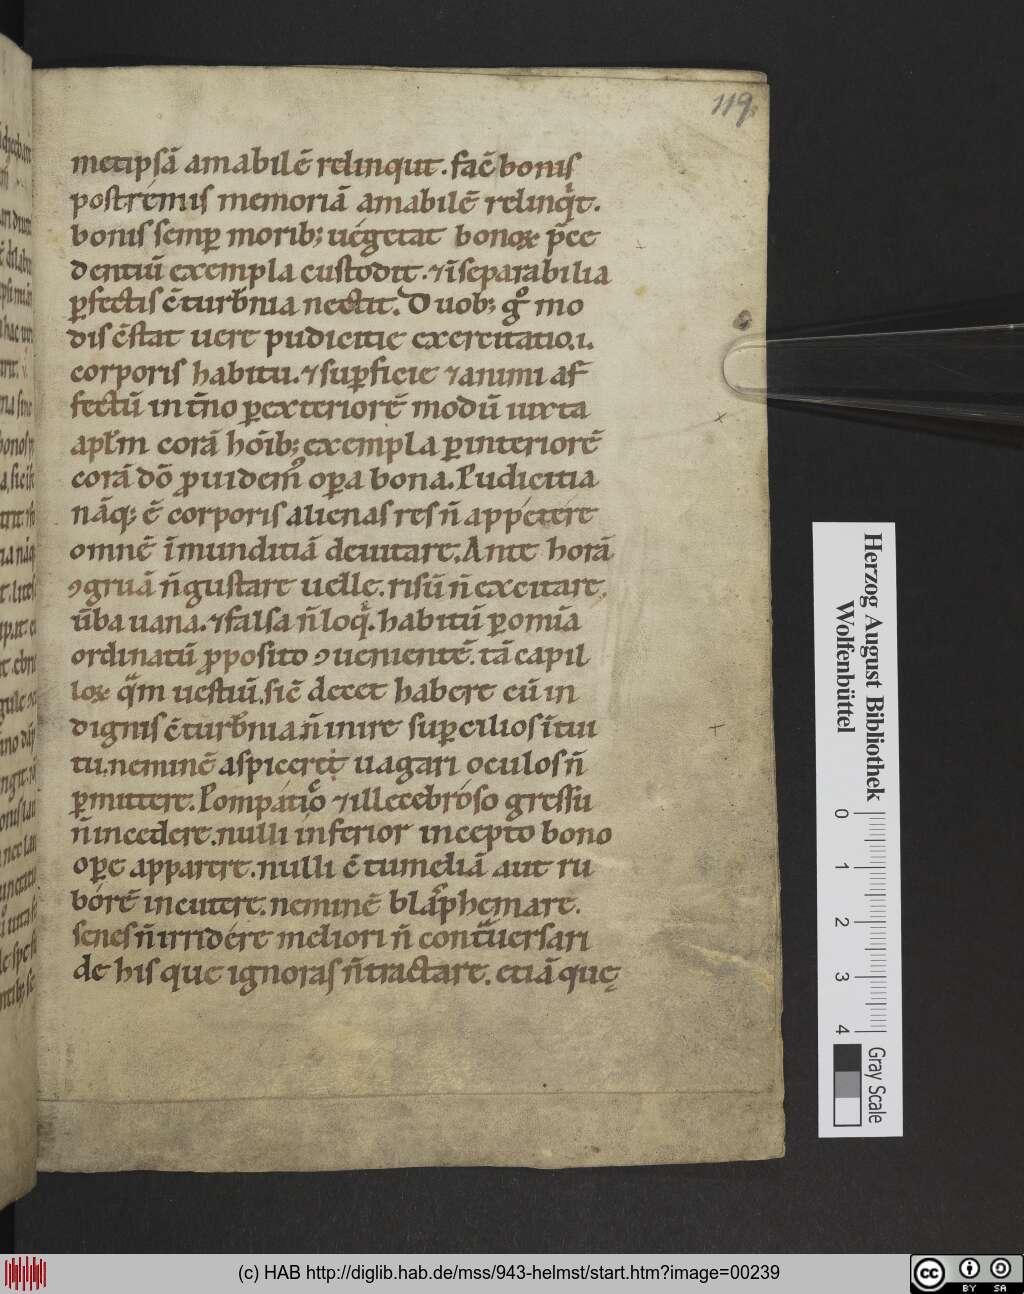 119
metipsā amabilē relinquit. facē bonis
postremis memoriā amabilē relinqͥt.
bonis semꝑ morib; uegetat bonoꝝ p̄ce
dentiū exempla custodit. ⁊ īseparabilia
ꝑfectis ɔ̄turbnia nectit. Duob; gͦ mo
dis ɔ̄stat uere pudicitie exercitatio.i.
corporis habitu. ⁊ suꝑficie ⁊ animi af
fectū int̄no ꝑ exteriorē modū iuxta
apl̄m corā hoīb; exempla ꝑ interiorē
corā dō ꝓuidem᷒ oꝑa bona. Pudicitia
nāq; ē corporis alienas res n̄ appetere
omnē īmunditiā deuitare. Ante horā
ꝯgruā n̄ gustare uelle. risū n̄ excitare,
ūba uana. ⁊ falsa n̄ loqͥ. habitū ꝑ omīa
ordinatū ꝓposito ꝯuenientē. tā capil
loꝝ qͣm uestiū. sic̄ decet habere cū in
dignis ɔ̄turbnia n̄ inire suꝑcilios ītui
tu. neminē aspicere uagari oculos n̄
ꝑmittere. Pompatico ⁊ illecebroso gressu
n̄ incedere. nulli inferior incepto bono
oꝑe apparere. nulli ɔ̄tumeliā aut ru
borē incutere. neminē blasphemare.
senes n̄ irridere meliori n̄ contͣuersari
de his que ignoras n̄ tractare. etiā quę
Herzog August Bibliothek
Wolfenbüttel
0 1 2 3 4
Gray Scale
(c) HAB http://diglib.hab.de/mss/943-helmst/start.htm?image=00239
cc BY SA